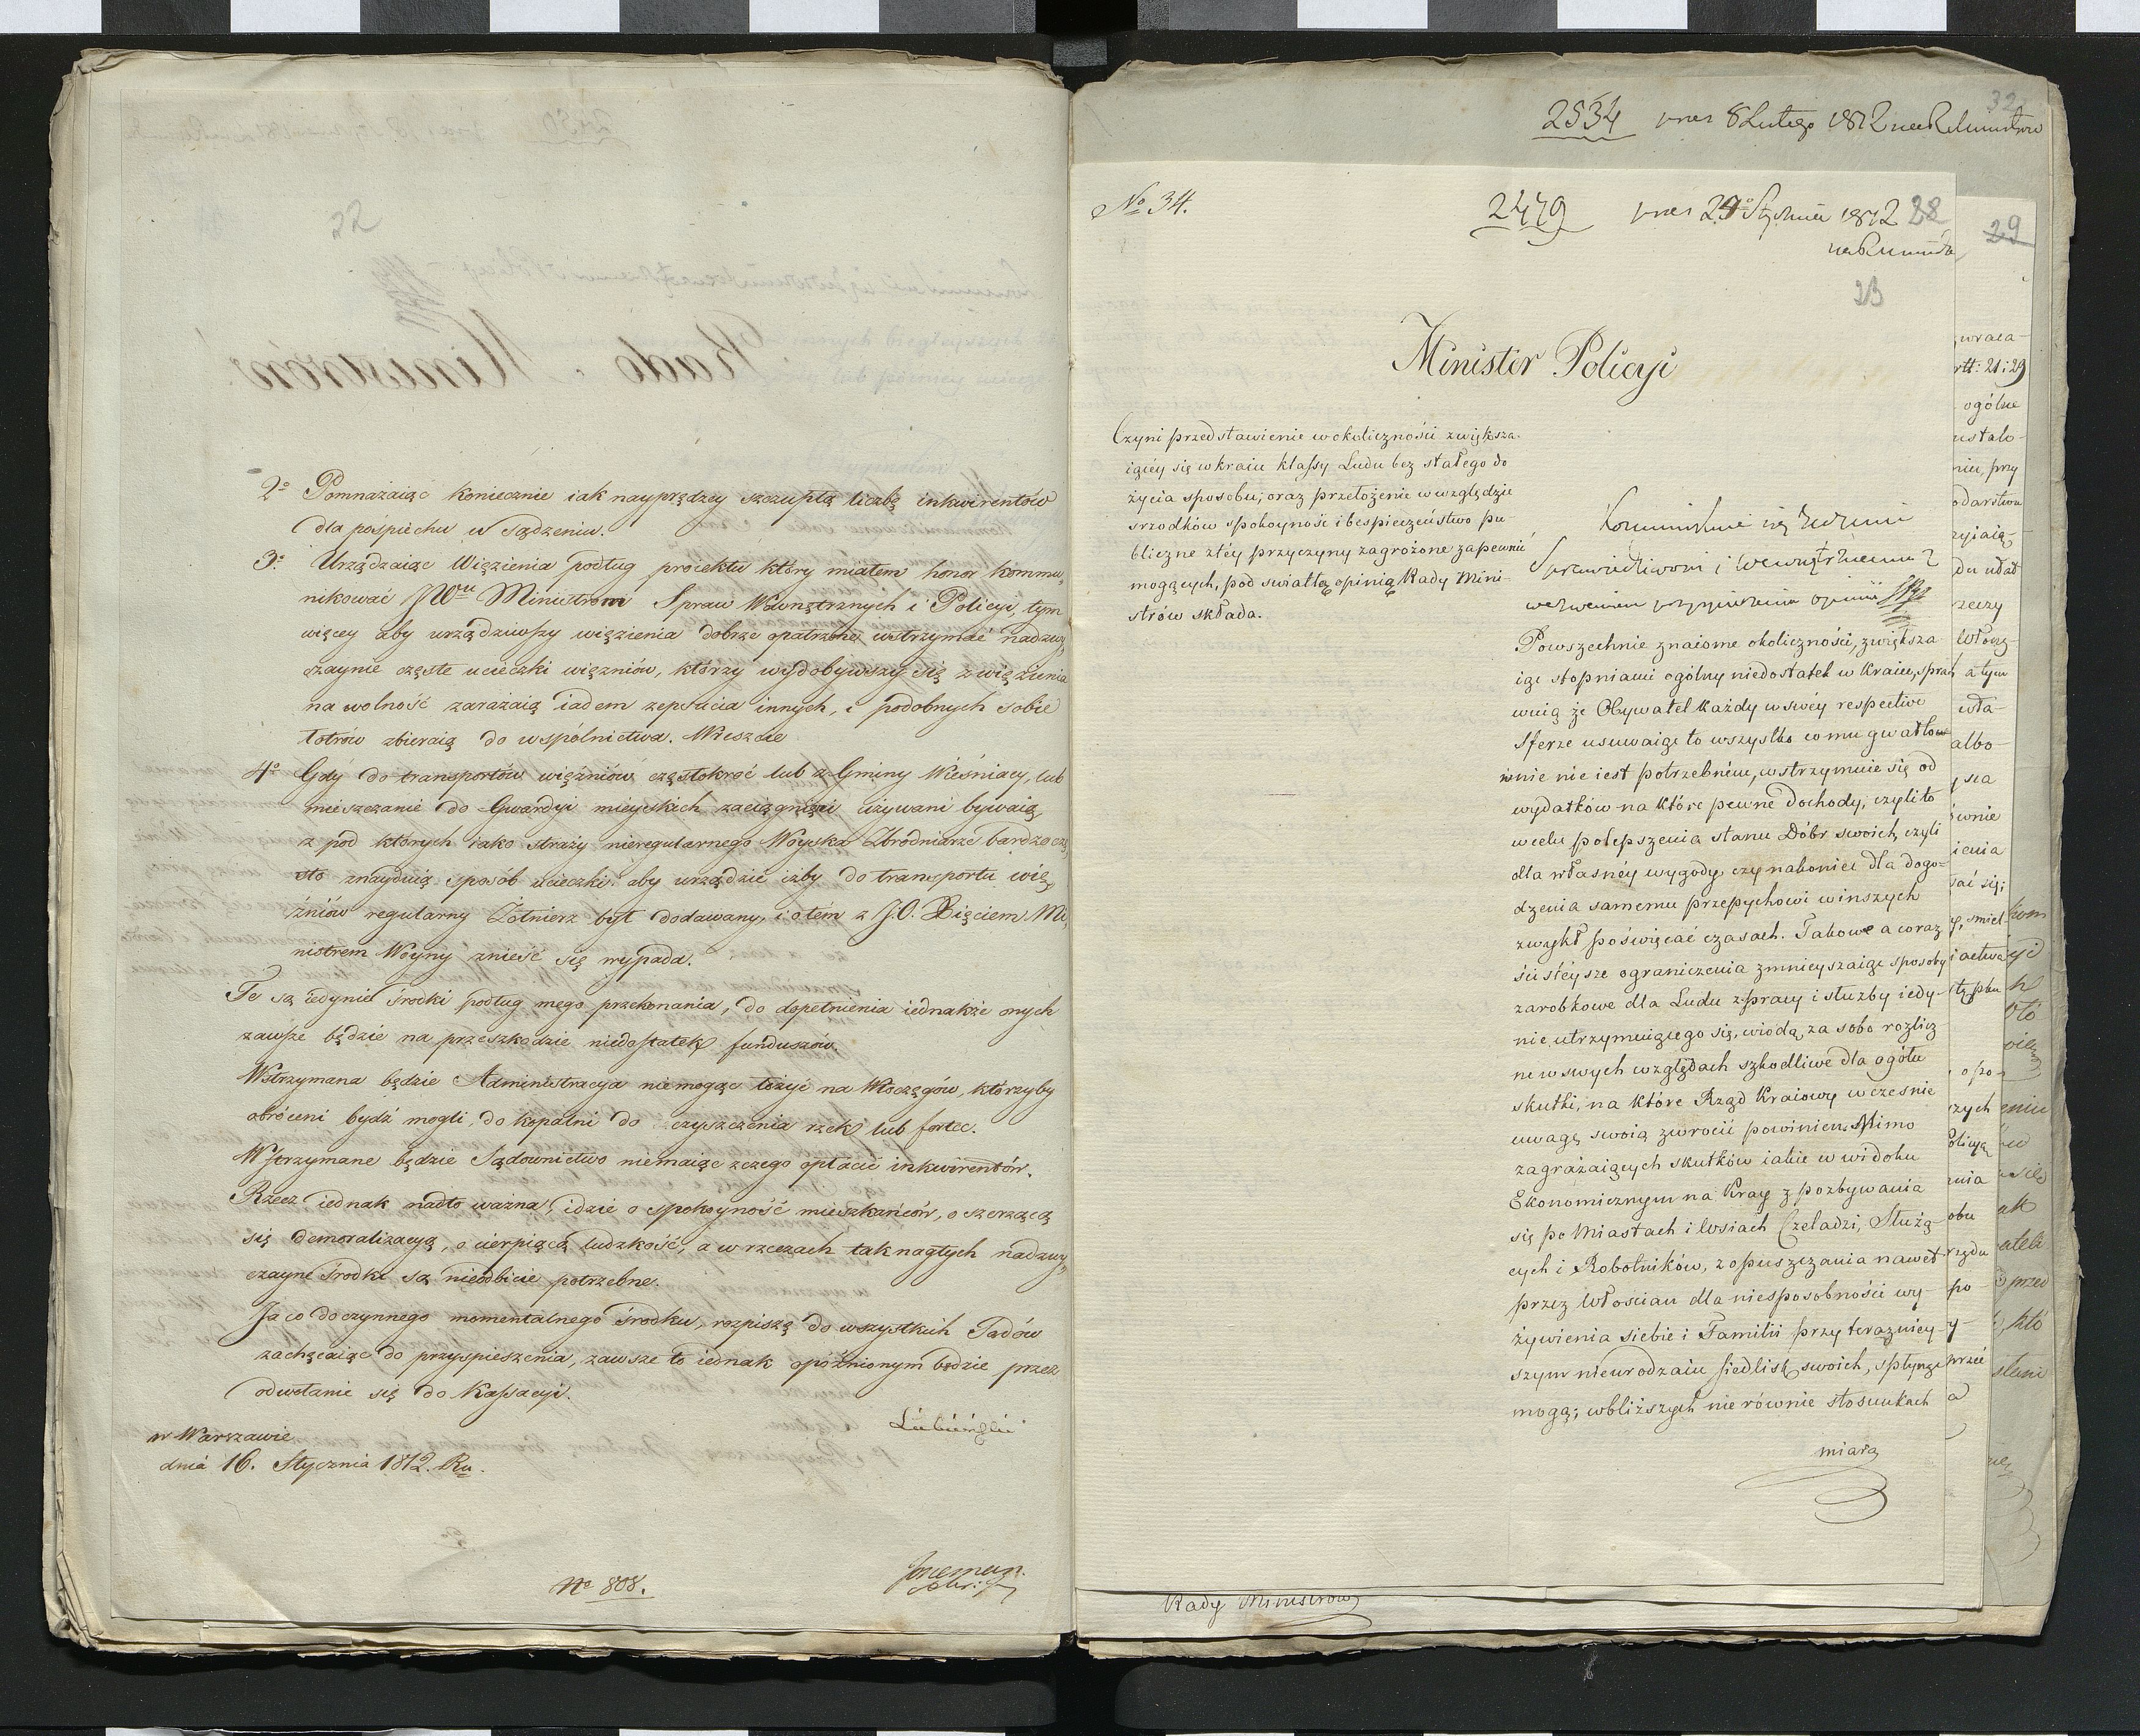 22
2º Pomnażaiąc koniecznie iak nayprędzey szczupłą liczbę inkwirentów
dla pośpiechu w sądzeniu.
3º Urządzaiąc Więzienia podług proiektu który miałem honor kommu
nikować JWu Ministrom Spraw Wewnętrznych i Policyi, tym
więcey aby urządziwszy więzienia dobrze opatrzone, wstrzymać nadzwy
czaynie częste ucieczki więzniów, którzy wydobywszy się z więzienia
na wolność zarażaią iadem zepsucia innych, i podobnych sobie
łotrów zbieraią do wspólnictwa. Wreszcie
4º Gdy do transportów więźniów częstokroć lub z Gminy Wieśniacy, lub
mieszczanie do Gwardyi mieyskich zaciągnięci używani bywaią
z pod których iako straży nieregularnego Woyska Zbrodniarze bardzo czę
sto znayduią sposób ucieczki: aby urządzić iżby do transportu wię
źniów regularny Żołnierz był dodawany, i o tém z J.O. Xięciem Mi
nistrem Woyny znieść się wypada.
Te są iedynie środki podług mego przekonania, do dopełnienia iednakże onych
zawsze będzie na przeszkodzie niedostatek funduszów.
Wstrzymana będzie Administracya niemogąc łożyć na Włoczęgów, którzyby
obróceni bydź mogli, do kopalni do czyszczenia rzek lub fortec.
Wstrzymane będzie Sądownictwo niemaiąc zczego opłacić inkwirentów.
Rzecz iednak nadto ważna, idzie o spokoyność mieszkańców, o szerzącą
się demoralizacyą, o cierpiącą ludzkość, a w rzeczach tak nagłych nadzwy
czayne środki są nieodbicie potrzebne.
Ja co do czynnego momentalnego środku, rozpiszę do wszystkich Sądów
zachęcaiąc do przyspieszenia, zawsze to iednak opóźnionym będzie przez
odwołanie się do Kassacyi.
Łubieński
w Warszawie
dnia 16. Stycznia 1812. Ru.
Nº 808.
32
2534 8 Lutego 1812
Nº 34.
2479 Stycznia 1812 28
29
23
Minister Policyi
Czyni przedstawienie w okoliczności zwiększa
iącéy się w kraiu klassy Ludu bez stałego do
życia sposobu; oraz przełożenie wwzględzie
srzodków spokoyność i bespieczeństwo pu
bliczne z téy przyczyny zagrożone zapewnić
mogących, pod swiatłą opinią Rady Mini
strów składa.
Sprawiedliwości i Wewnętrznemu z
wezwaniem opinii
Powszechnie znaiome okoliczności, zwiększa
iąc stopniami ogólny niedostatek w Kraiu, spra
wuią że Obywatel każdy w swéy respective
Sferze usuwaiąc to wszystko co mu gwałtow
nie nie iest potrzebném, wstrzymuie się od
wydatków na które pewne dochody, czyli to
w celu polepszenia stanu Dóbr swoich, czyli
dla własnéy wygody, czy nakoniec dla dogo
dzenia samemu przepychowi w inszych
zwykł poświęcać czasach. Takowe a coraz
ściśléysze ograniczenia zmnieyszaiąc sposoby
zarobkowe dla Ludu z pracy i służby iedy
nie utrzymuiącego się, wiodą za sobą rozlicz
ne w swych względach szkodliwe dla ogółu
skutki, na które Rząd Kraiowy wcześnie
uwagę swoią zwrócić powinien. Mimo
zagrażaiących skutków iakie w widoku
Ekonomicznym na Kray z pozbywania
się po Miastach i Wsiach Czeladzi, Służą
cych i Robotników, z opuszczania nawet
przez Włościan dla niesposobności wy
żywienia siebie i Familii przy terazniey
szym nieurodzaiu siedlisk swoich, spłynąć
mogą; wbliższych nierównie stosunkach
miarą
Rady Ministrów